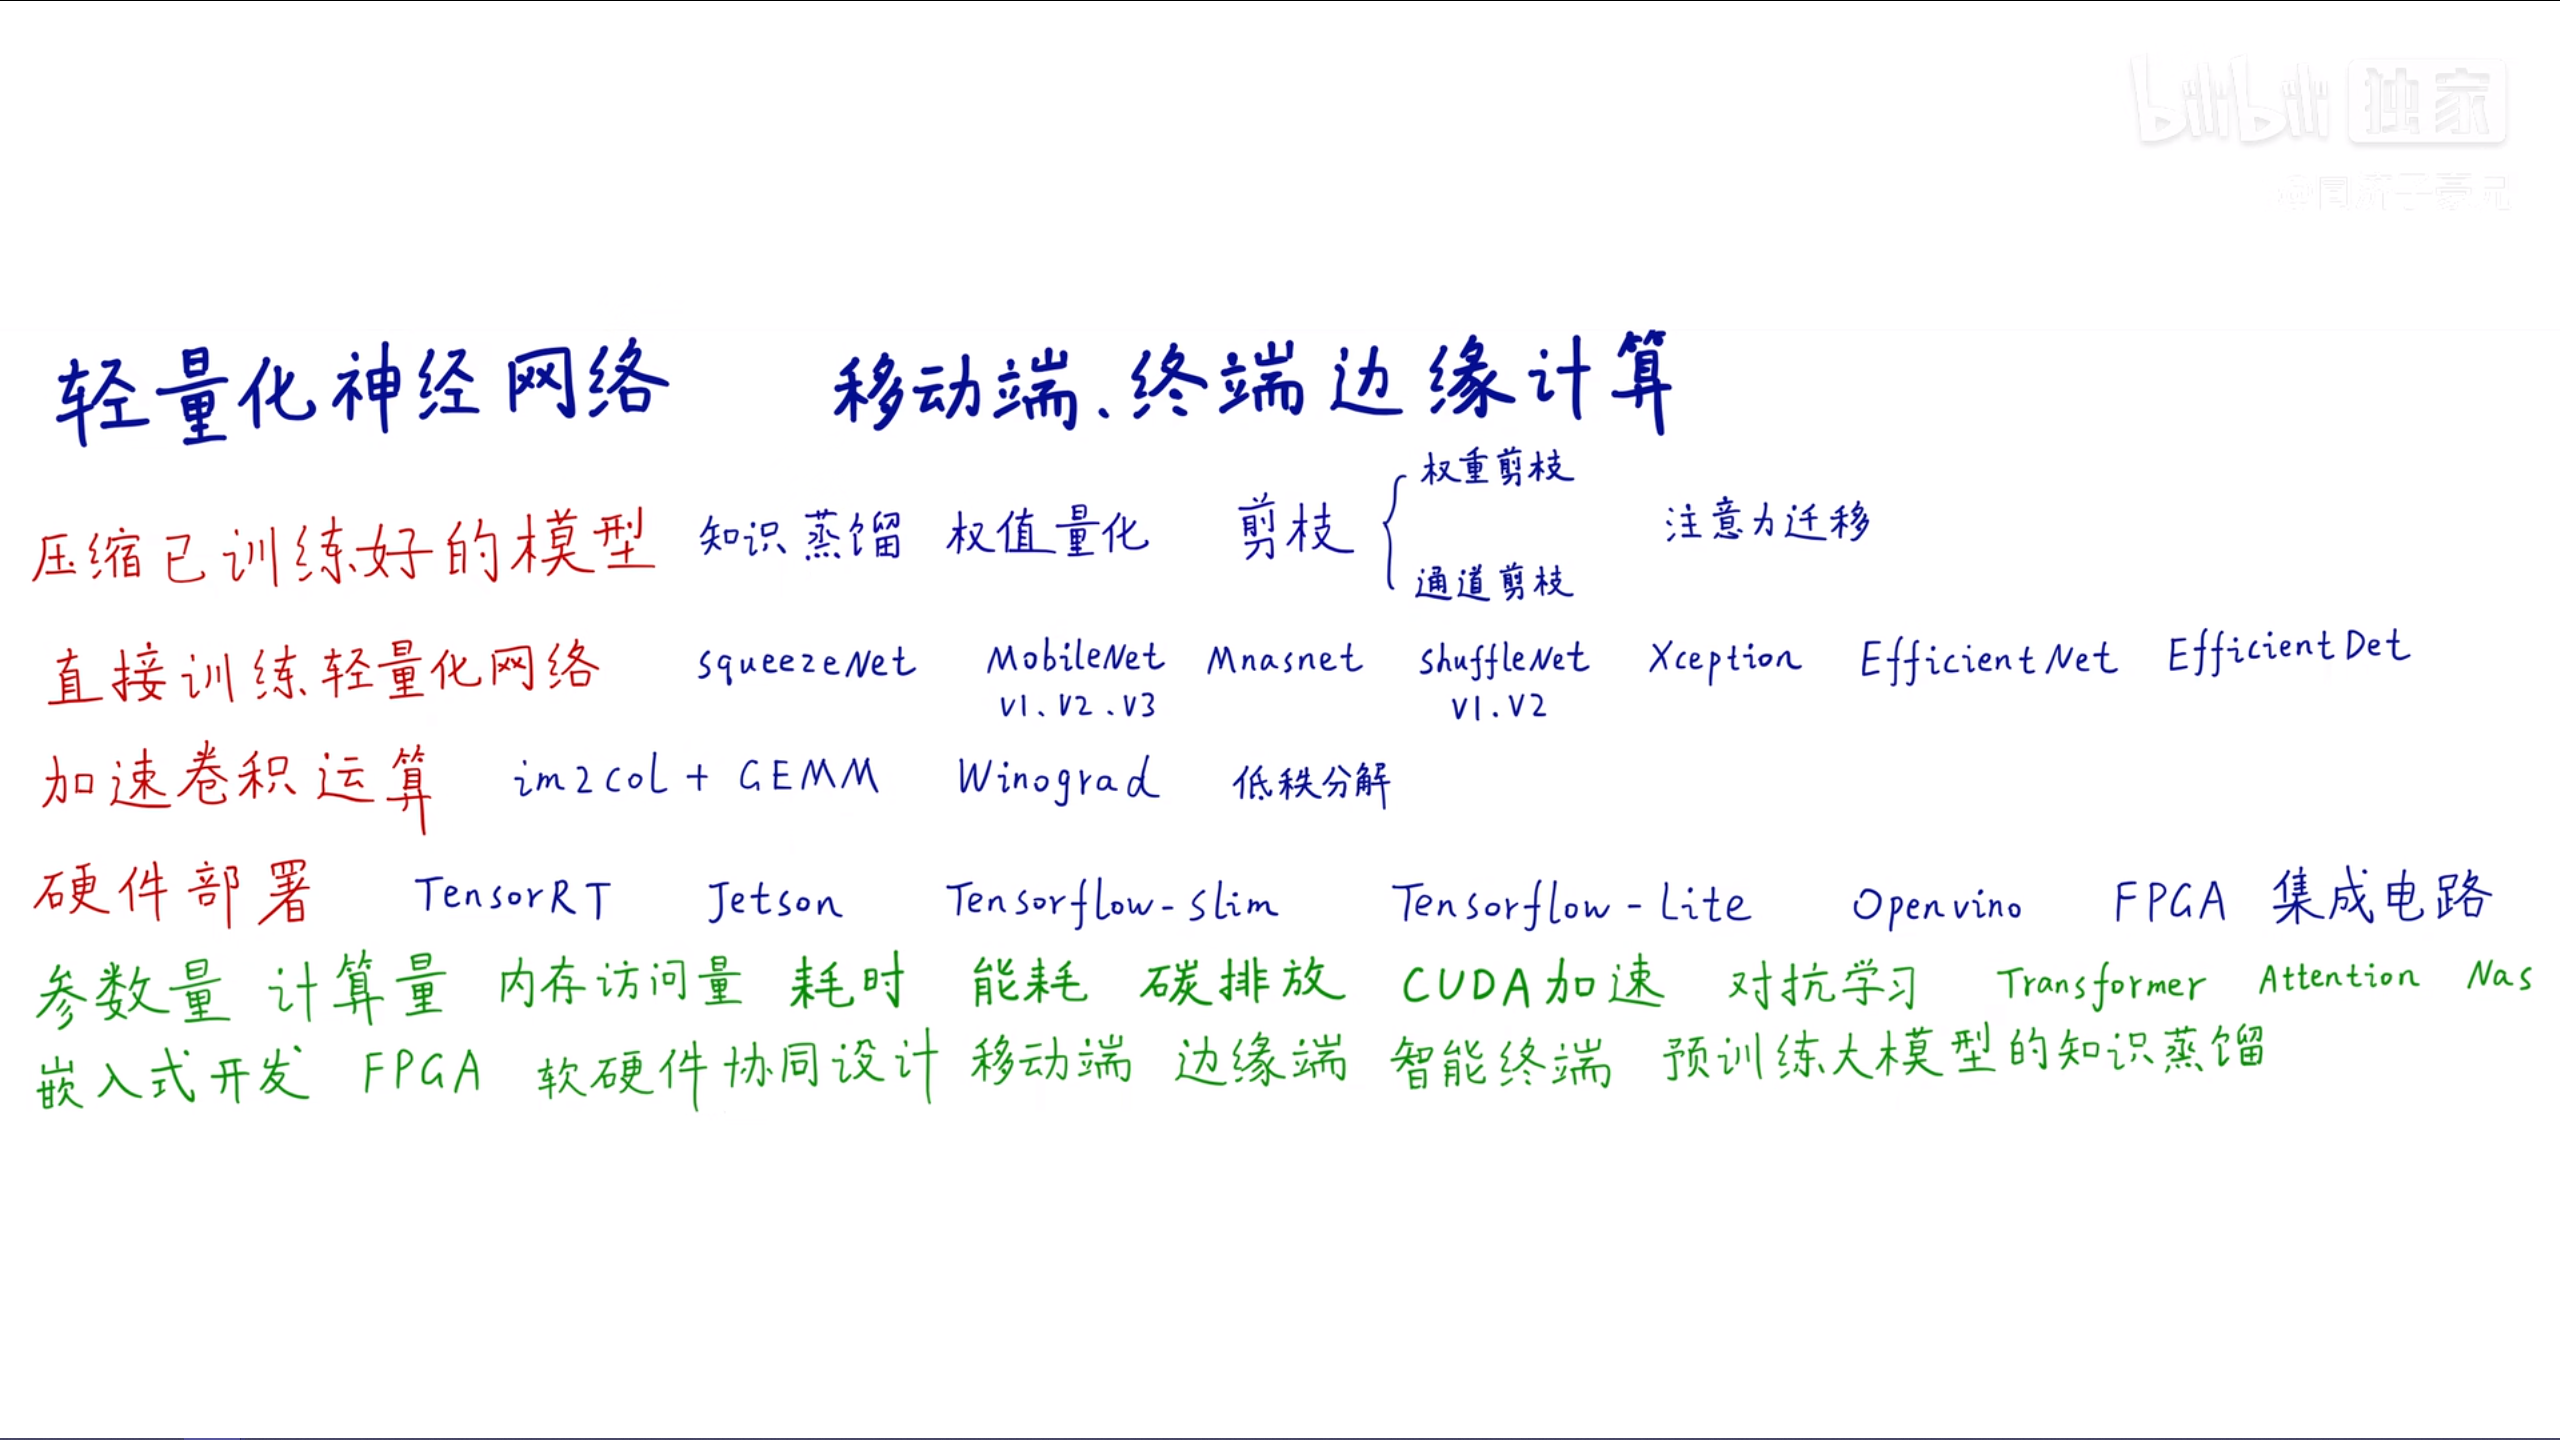 bilibili 独家
@同济子豪兄
轻量化神经网络 移动端、终端边缘计算
压缩已训练好的模型 知识蒸馏 权值量化 剪枝 { 权重剪枝 通道剪枝 注意力迁移
直接训练轻量化网络 squeezeNet MobileNet V1、V2、V3 Mnasnet shuffleNet V1.V2 Xception EfficientNet EfficientDet
加速卷积运算 im2col + GEMM Winograd 低秩分解
硬件部署 TensorRT Jetson Tensorflow-slim Tensorflow-Lite Openvino FPGA 集成电路
参数量 计算量 内存访问量 耗时 能耗 碳排放 CUDA加速 对抗学习 Transformer Attention Nas
嵌入式开发 FPGA 软硬件协同设计 移动端 边缘端 智能终端 预训练大模型的知识蒸馏